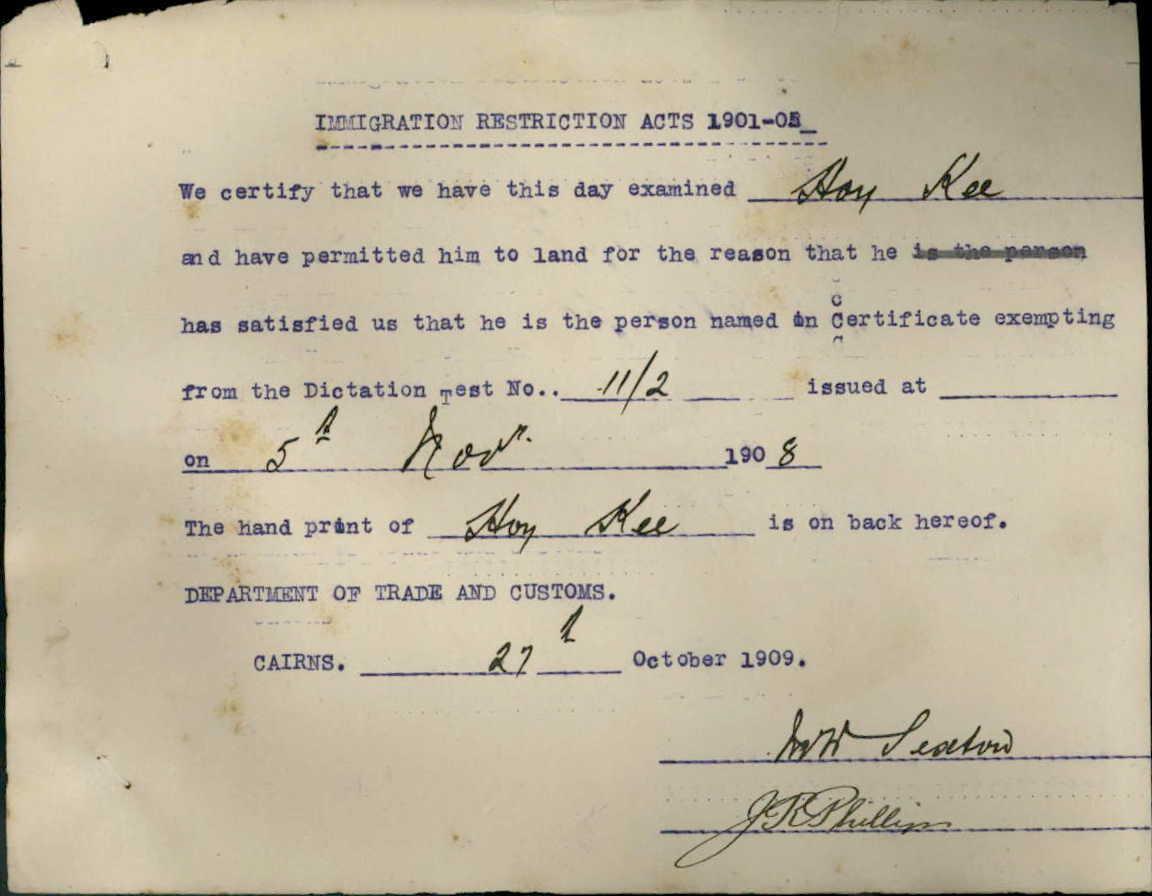 IMMIGRATION RESTRICTION ACTS 1901-05
We certify that we have this day examined Hoy Kee
and have permitted him to land for the reason that he is the person
has satisfied us that he is the person named in Certificate exempting
from the Dictation Test No.. 11/2 issued at
on 5th Novr. 1908
The hand print of Hoy Kee is on back hereof.
DEPARTMENT OF TRADE AND CUSTOMS.
CAIRNS. 27th October 1909.
Seaton
J R Phillips